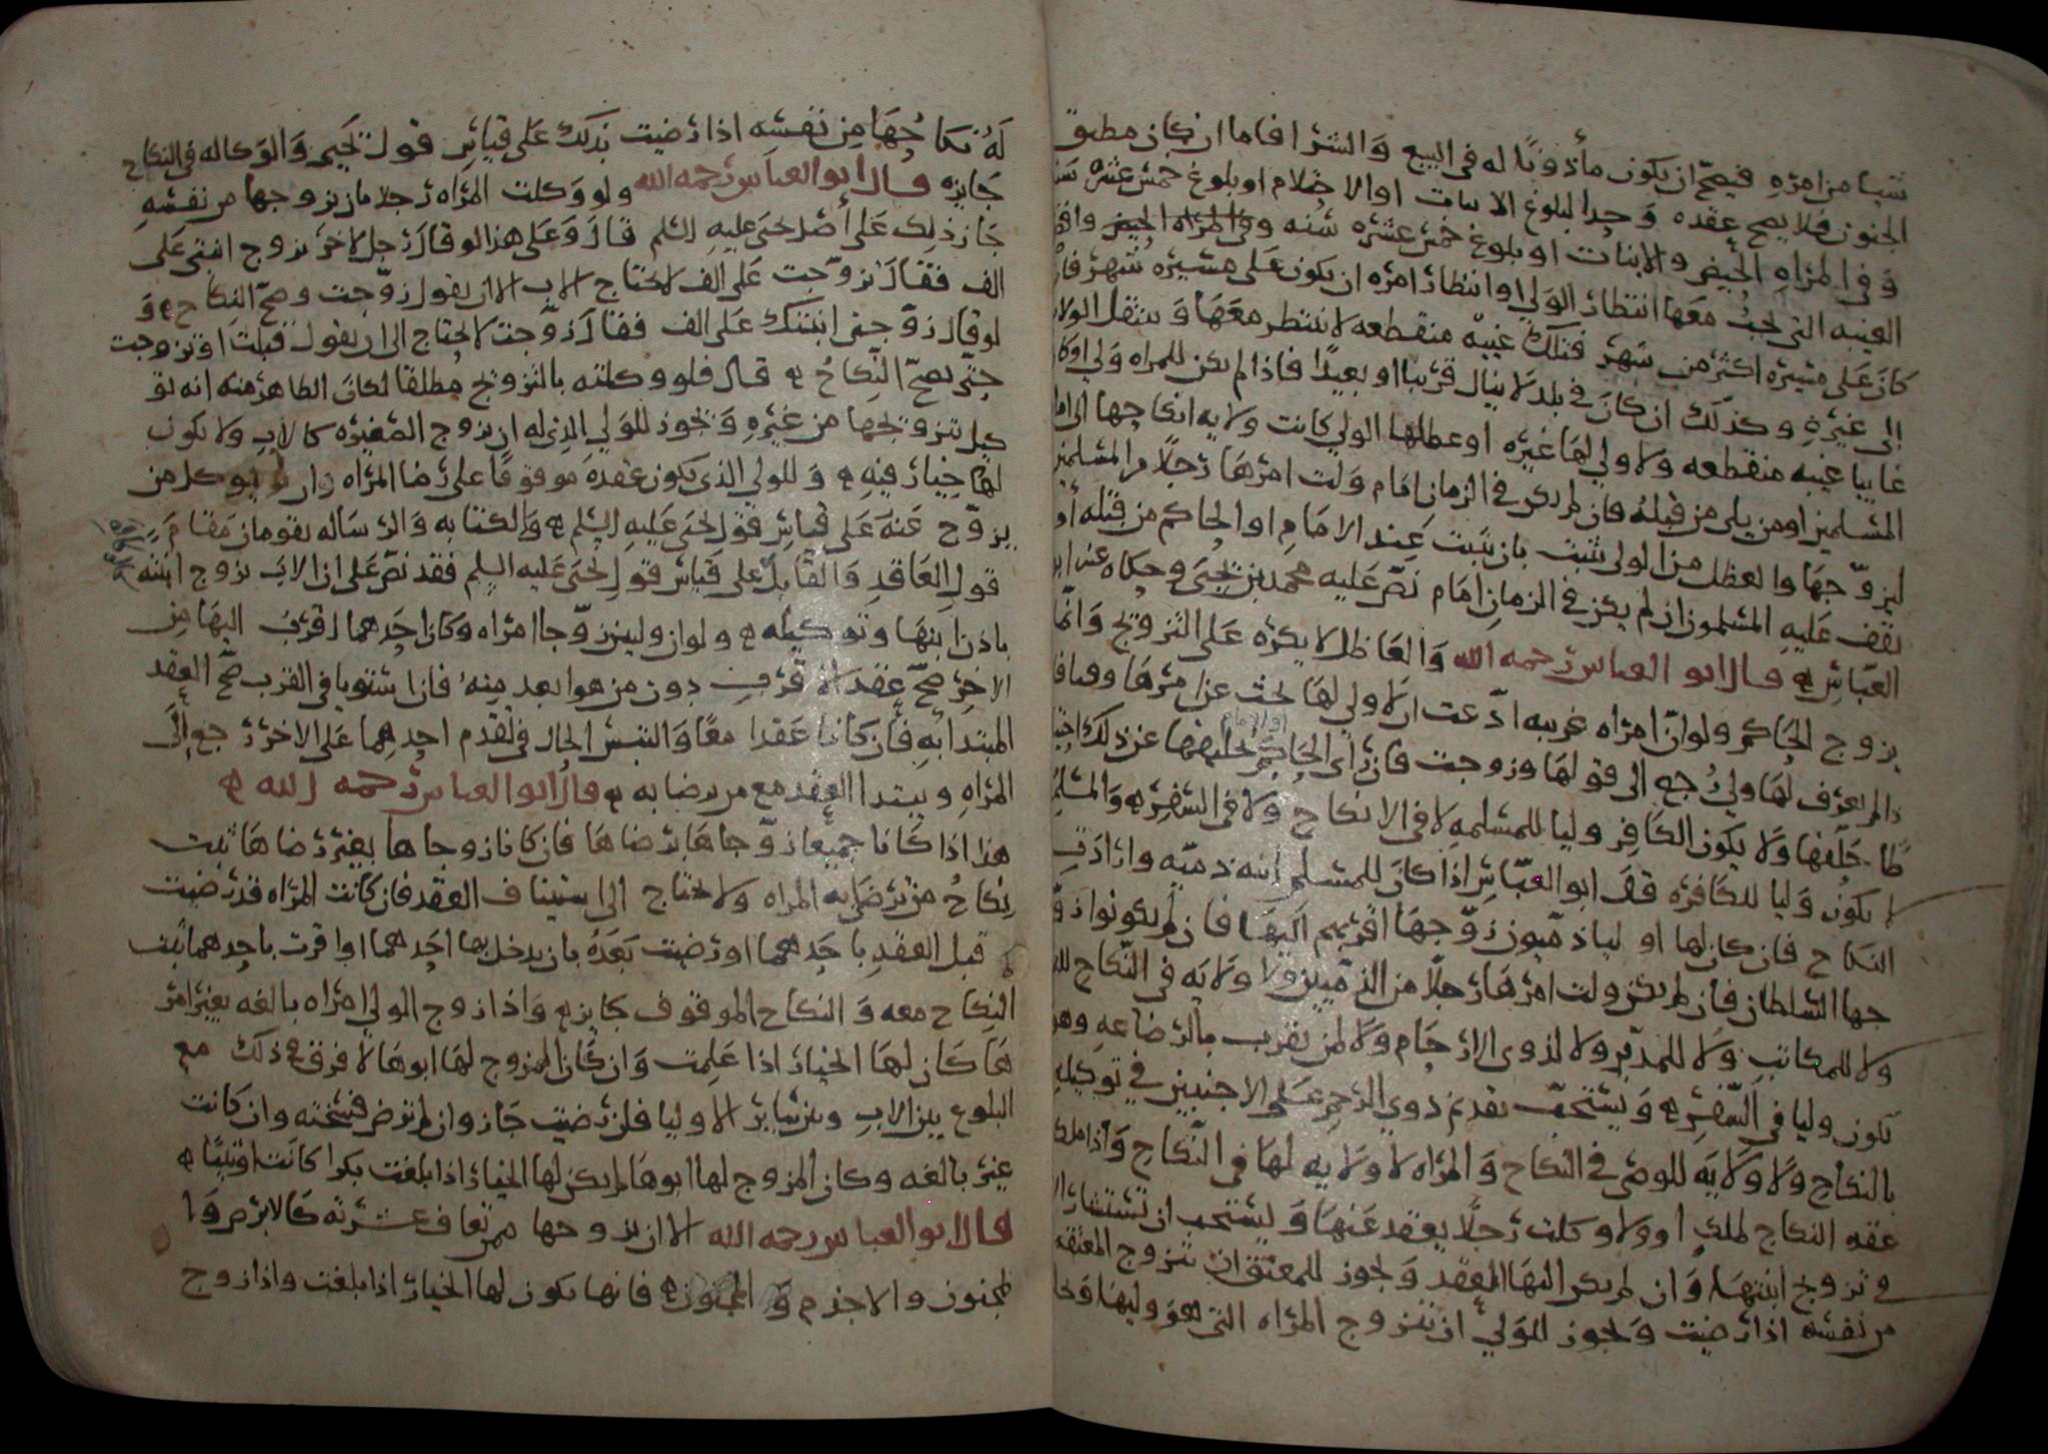 شيا من امره فيصح ان يكون مأذونا له في البيع والشرا فاما ان كان مطبق
الجنون فلا يصح عقده وحد البلوغ الانبات او الاحتلام او بلوغ خمس عشره سنه
وفي المراه الحيض والانبات او بلوغ خمس عشره سنه وفي المراه الحيض
الغيبه التي يجب معها انتظار الولي او انتظار امره ان يكون على مسيره شهر فان
كان على مسيره اكثر من شهر فتلك غيبه منقطعه لا ينتظر معها وينتقل الولايه
الى غيره وكذلك ان كان في بلد لا ينال قريبا او بعيدا فاذا لم يكن للمراه ولي او كان
غايبا غيبه منقطعه ولا ولي لها غيره او عضلها الولي كانت ولايه انكاحها الى امام
المسلمين او من يلي من قبله فان لم يكن في الزمان امام ولت امرها رجلا من المسلمين
ليزوجها والعضل من الولي يثبت بان يثبت عند الامام او الحاكم من قبله أو
يقف عليه المسلمون ان لم يكن في الزمان امام نص عليه محمد بن يحيى وحكاه عنه ابو
العباس قال ابو العباس رحمه الله والعاضل لا يكره على التزويج وانما
يزوج الحاكم ولو ان امراه غريبه ادعت ان لا ولي لها بحث عن امرها
فان لم يعرف لها ولي رجع الى قولها وزوجت فان راى الحاكم تحليفها عن ذلك احتياطا
حلفها ولا يكون الكافر وليا للمسلمه لا في الانكاح ولا في السفر والمسلم
لا يكون وليا للكافره قال ابو العباس اذا كان للمسلم ابنه ذميه وارادت
النكاح فان كان لها اوليا ذميون زوجها اقربهم اليها فان لم يكونوا
جها السلطان فان لم يكن ولت امرها رجلا من الذميين ولا ولايه في النكاح
ولا للمكاتب ولا للمدبر ولا لذوي الارحام ولا لمن يقرب بالرضاعه وهو
يكون وليا في السفر ويستحب تقديم ذوي الرحم على الاجنبيين في توكيله
بالنكاح ولا ولايه للوصي في النكاح والمراه لا ولايه لها في النكاح واذا ملكت
عقد النكاح لملك او ولا وكلت رجلا يعقد عنها ويستحب ان تستشار
في تزويج ابنتها وان لم يكن اليها العقد ويجوز للمعتق ان يتزوج المعتقه
من نفسه اذا رضيت ويجوز للولي ان يتزوج المراه التي هو وليها
له نكاحها من نفسه اذا رضيت بذلك على قياس قول يحيى والوكاله في النكاح
جايزه قال ابو العباس رحمه الله ولو وكلت المراه رجلا بان يزوجها من نفسه
جاز ذلك على أصل يحيى عليه السلم قال وعلى هذا لو قال رجل لاخر تزوج ابنتي على
الف فقال تزوجت على الف لا يحتاج الاب الا ان يقول زوجت وصح النكاح و
لو قال زوجني ابنتك على الف فقال زوجت لا يحتاج الى ان يقول قبلت او تزوجت
حتى يصح النكاح قال فلو وكلته بالتزويج مطلقا لكان الظاهر منه انه تو
كيل تزويجها من غيره ويجوز للولي الذي له ان يزوج الصغيره كالاب ولا يكون
لها خيار فيه وللولي الذي يكون عقده موقوفا على رضا المراه ان يوكل من
يزوج عنه على قياس قول يحيى عليه السلم والكتابه والرساله يقومان مقام
قول العاقد والقابل على قياس قول يحيى عليه السلم فقد نص على ان الاب تزوج ابنته
باذن ابنها وتوكيله ولو ان وليين زوجا امراه وكان احدهما اقرب اليها من
الاخر صح عقد الاقرب دون من هو ابعد منه فان استويا في القرب صح العقد
المبتدا به فان كانا عقدا معا والتبس الحال في تقدم احدهما على الاخر رجع إلى
المراه ويبتدا العقد مع من رضا به قال ابو العباس رحمه الله
هذا اذا كانا جميعا زوجاها برضاها فان كانا زوجاها بغير رضاها ثبت
نكاح من ترضى به المراه ولا يحتاج الى استيناف العقد فان كانت المراه قد رضيت
قبل العقد باحدهما او رضيت بعده بان يدخل بها احدهما او اقرت باحدهما ثبت
النكاح معه والنكاح الموقوف جايز واذا زوج الولي امراه بالغه بغير امر
ها كان لها الخيار اذا علمت وان كان المزوج لها ابوها لا فرق في ذلك مع
البلوغ بين الاب وبين ساير الاوليا فان رضيت جاز وان لم ترض فسخته وان كانت
غير بالغه وكان المزوج لها ابوها لم يكن لها الخيار اذا بلغت بكرا كانت او ثيبا
قال ابو العباس رحمه الله الا ان يزوجها ممن تعاف عشرته كالابرص وا
لمجنون والاجذم و فانها يكون لها الخيار اذا بلغت واذا زوج